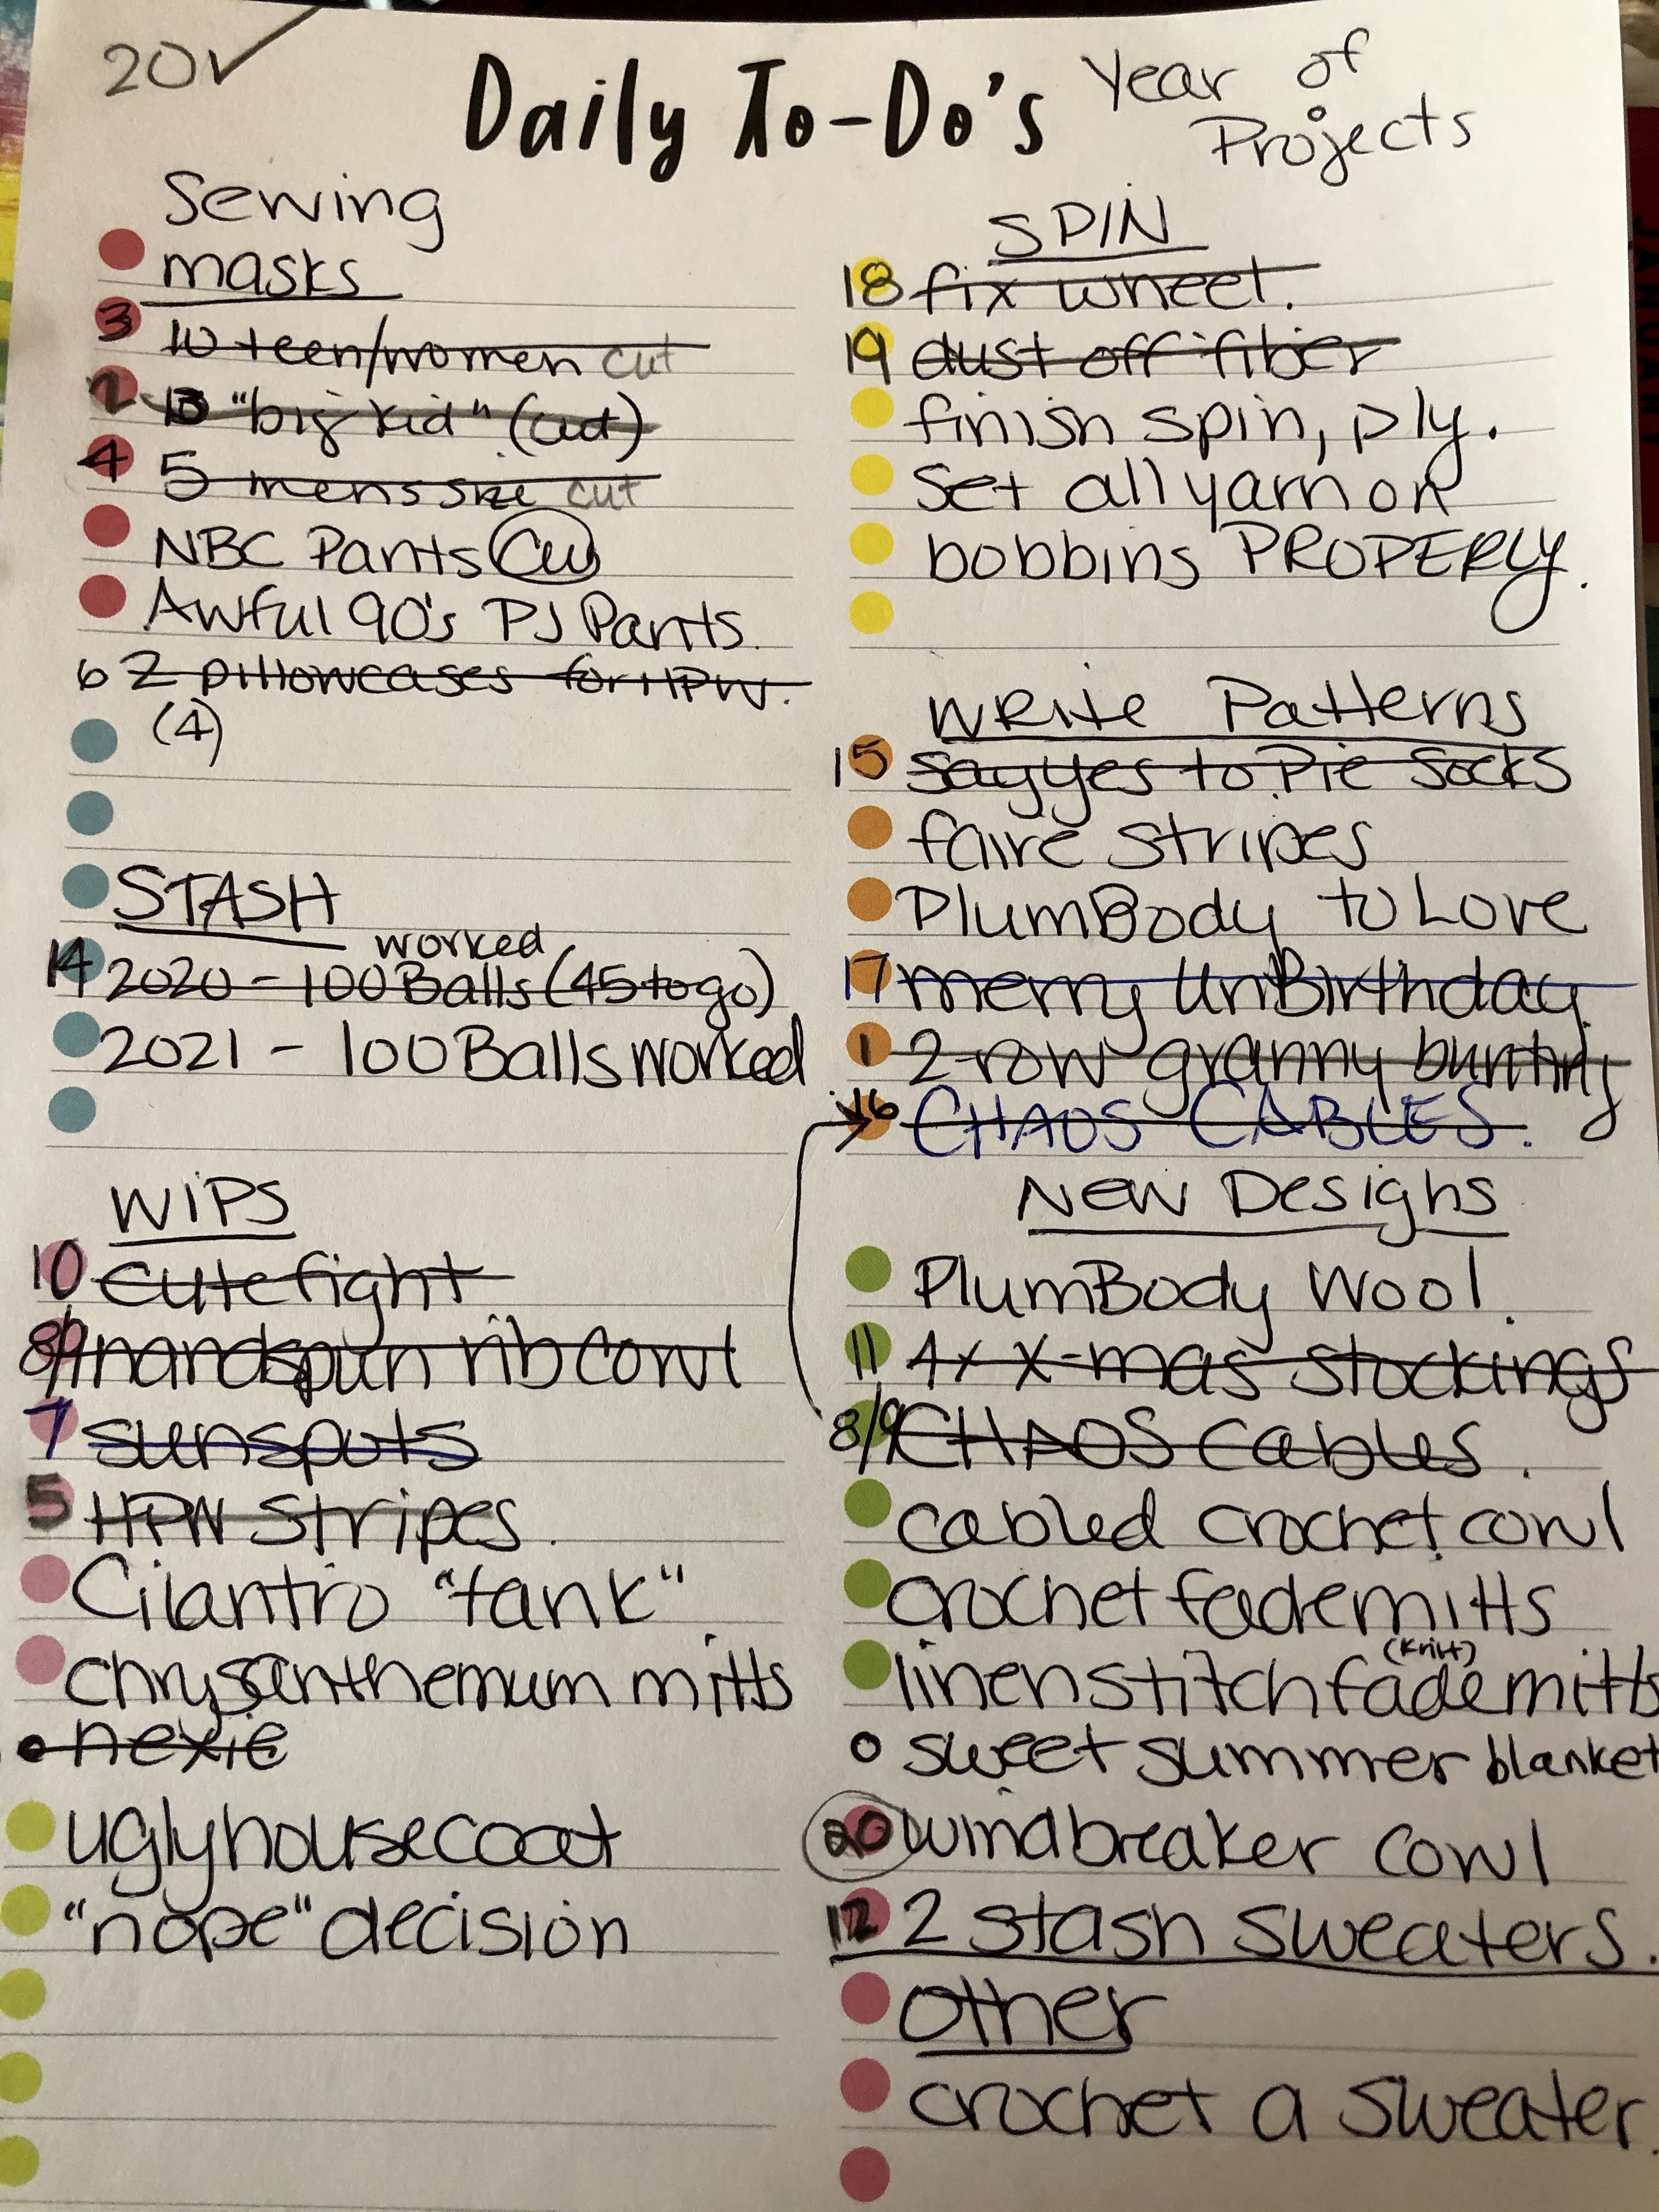 20✓
Daily To-Do's
Year of
Projects
Sewing
masks
3 10 teen/women cut
2 "big kid" (cut)
4 5 mens size cut
NBC Pants
Awful 90's PJ Pants.
6 2 pillowcases for HPW.
(4)
STASH
worked
14 2020 - 100 Balls (45 to go)
2021 - 100 Balls worked
WIPS
10 cutefight
8/9 handspun rib cowl
7 sunspots
5 HPW Stripes.
Cilantro "tank"
chrysanthemum mitts
hexie
ugly housecoat
"nope" decision
SPIN
18 fix wheel.
19 dust off fiber
finish spin, ply.
Set all yarn on
bobbins PROPERLY.
WRite Patterns
15 say yes to Pie Socks
faire stripes
PlumBody to Love
17 merry UnBirthday
1 2-row granny bunting
16 CHAOS CABLES.
New Designs
PlumBody Wool.
11 4x X-mas stockings
8/9 CHAOS Cables.
cabled crochet cowl
crochet fade mitts
(knit)
linen stitch fade mitts
sweet summer blanket
20 windbreaker cowl
12 2 stash sweaters.
other
crochet a sweater.